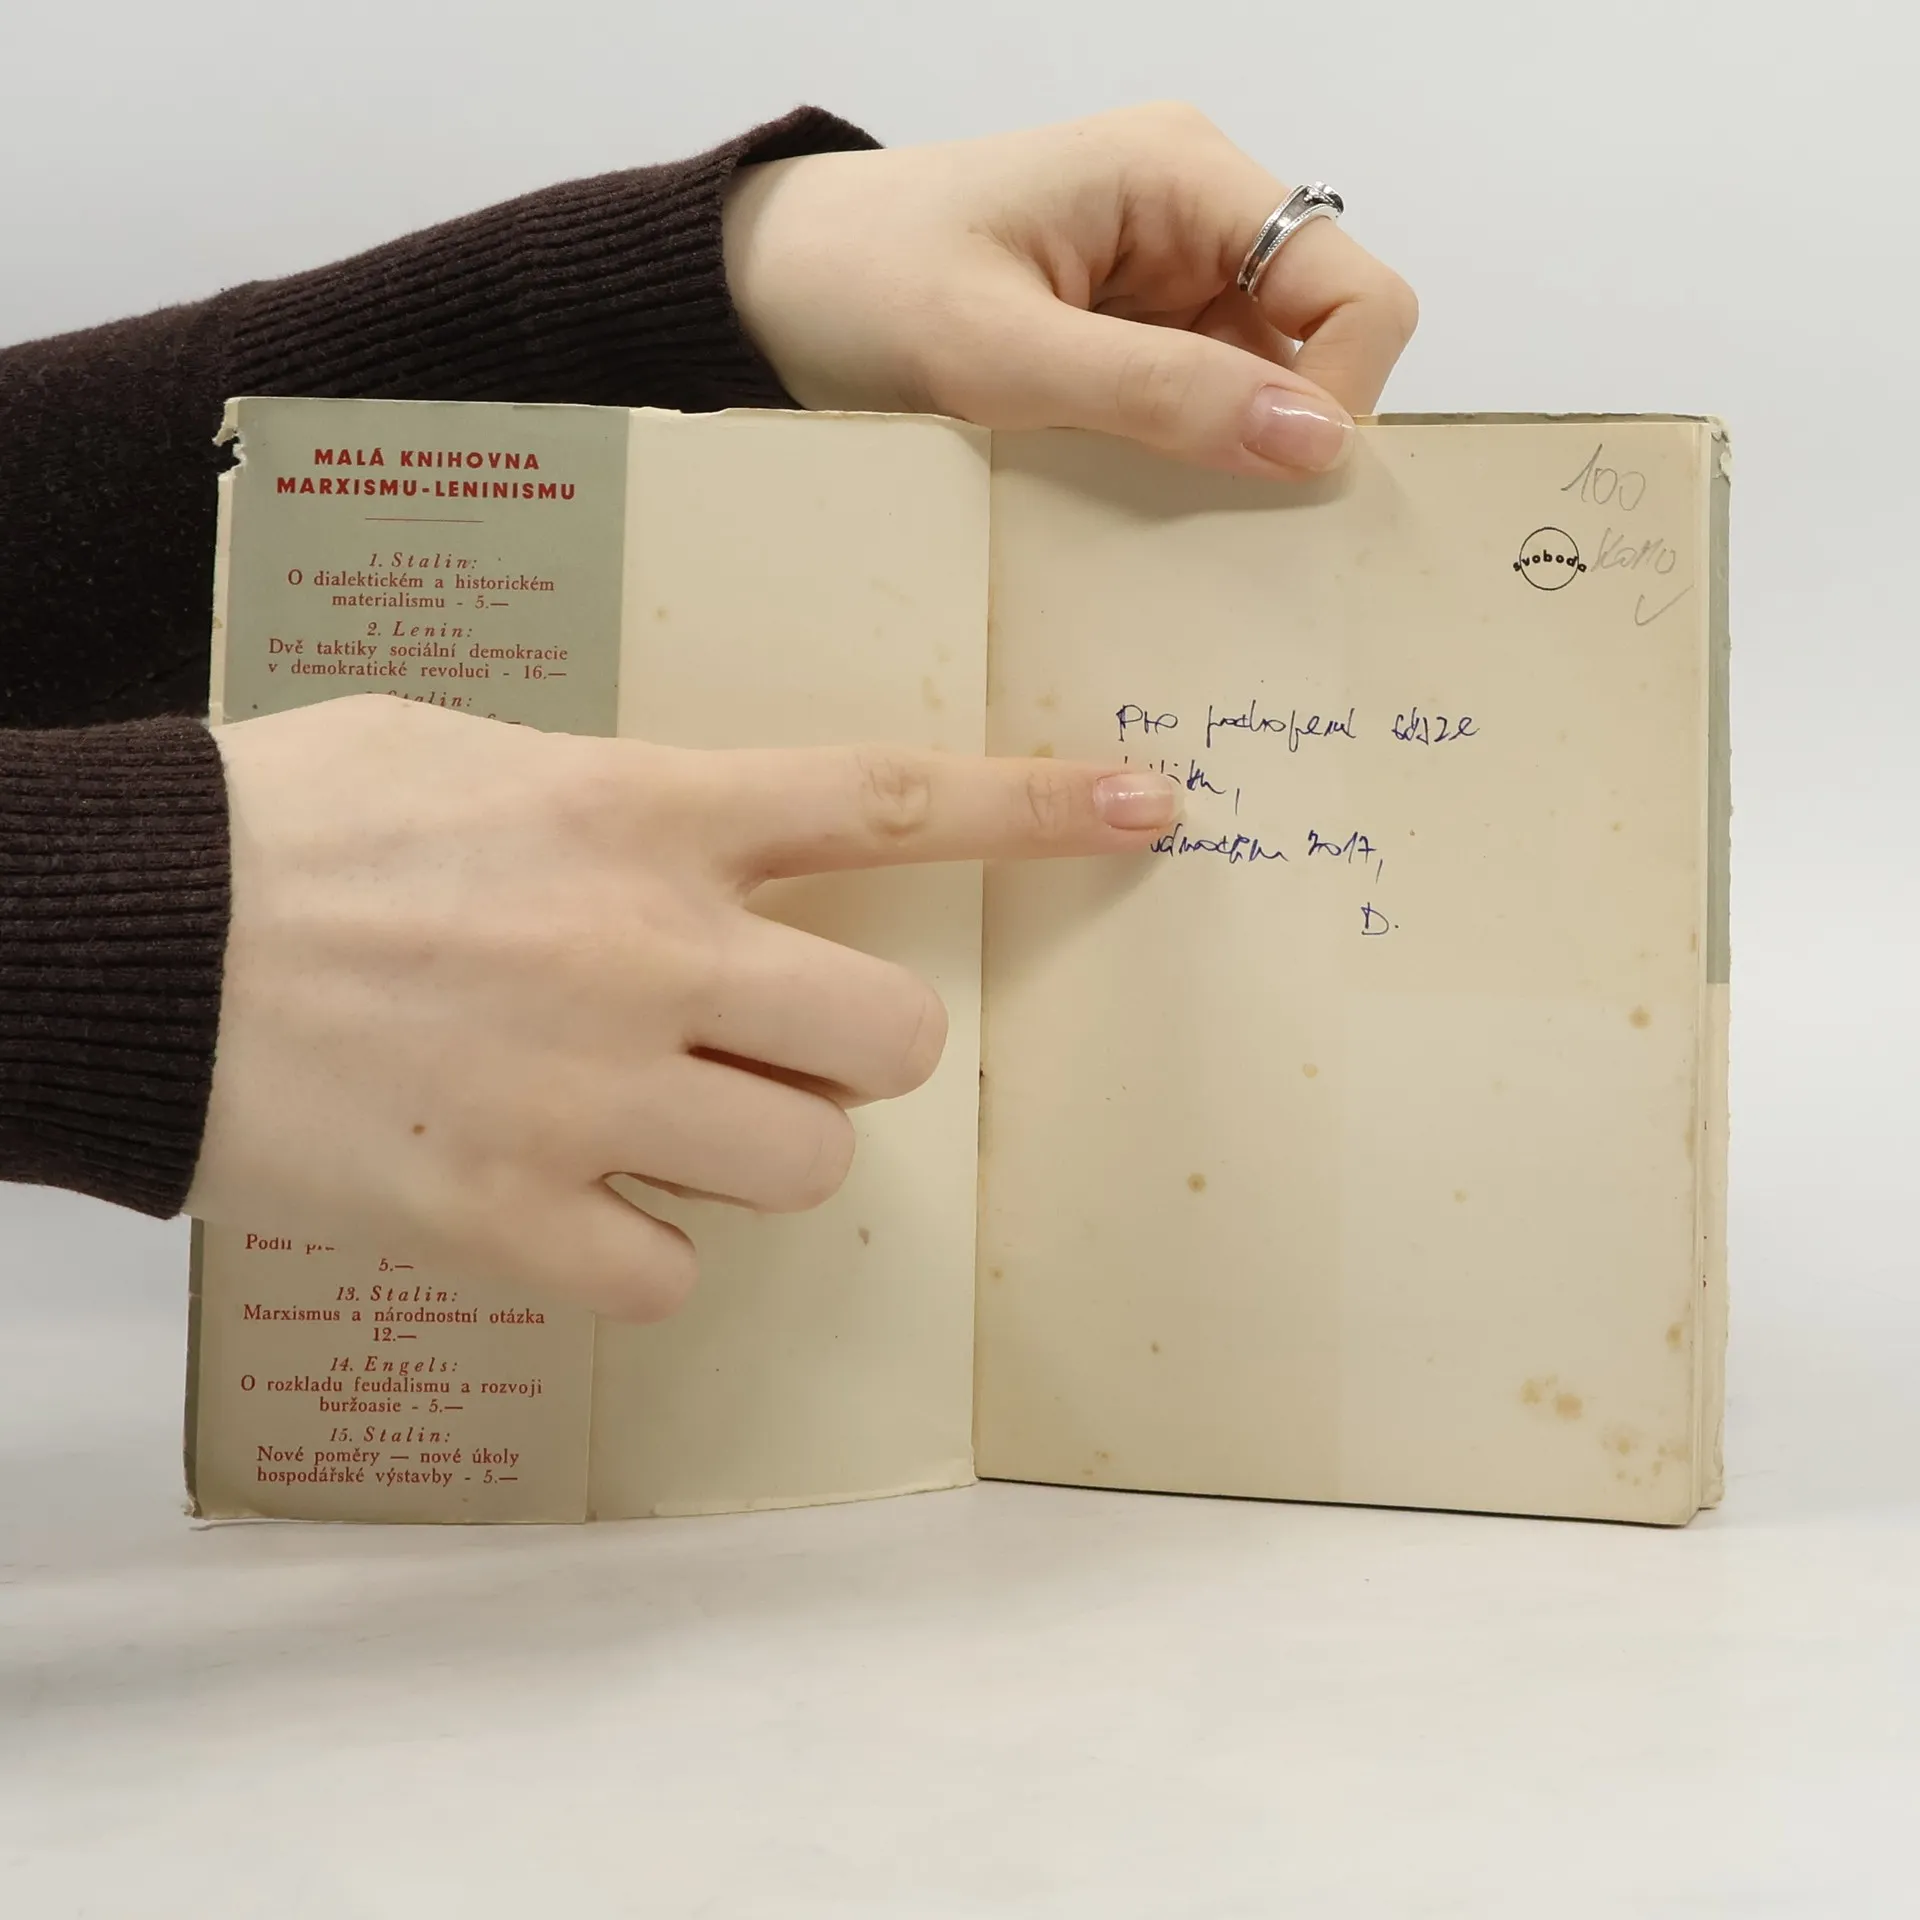 MALÁ KNIHOVNA
MARXISMU-LENINISMU
1. Stalin:
O dialektickém a historickém
materialismu - 5.—
2. Lenin:
Dvě taktiky sociální demokracie
v demokratické revoluci - 16.—
Stalin:
5.—
13. Stalin:
Marxismus a národnostní otázka
12.—
14. Engels:
O rozkladu feudalismu a rozvoji
buržoasie - 5.—
15. Stalin:
Nové poměry — nové úkoly
hospodářské výstavby - 5.—
100
svoboda
Pro pochopení
2017,
D.